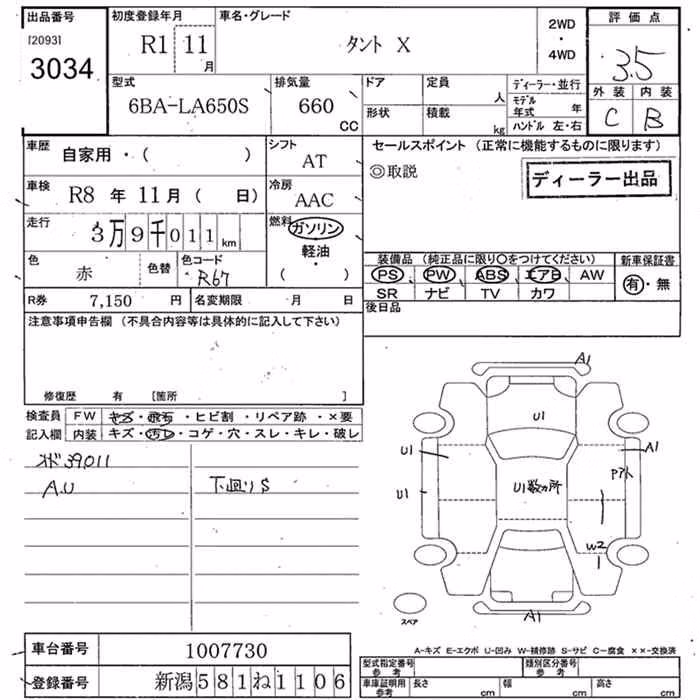 出品番号
[2093]
3034
初度登録年月
R1 11
月
車名・グレード
タント X
2WD
・
4WD
評価点
3.5
外装 内装
C B
型式
6BA-LA650S
排気量
660
CC
ドア
形状
定員
人
積載
kg
ディーラー・並行
モデル
年式 年
ハンドル 左・右
車歴
自家用・( )
シフト
AT
セールスポイント (正常に機能するものに限ります)
◎取説
ディーラー出品
車検
R8 年 11月( 日)
冷房
AAC
走行
3万9千011km
燃料
ガソリン
軽油・
( )
色
赤
色替
色コード
R67
装備品 (純正品に限り○をつけてください)
新車保証書
PS PW ABS エアB AW
SR ナビ TV カワ
有・無
R券 7,150 円
名変期限 月 日
後日品
注意事項申告欄 (不具合内容等は具体的に記入して下さい)
修復歴 有 [箇所 ]
検査員
記入欄
FW キズ・飛石・ヒビ割・リペア跡・×要
内装 キズ・汚レ・コゲ・穴・スレ・キレ・破レ
オド39011
A.U
下廻りS
A1
U1
U1
A1
Pアト
U1
U1数ヵ所
W2
A1
スペア
A-キズ E-エクボ U-凹み W-補修跡 S-サビ C-腐食 ××-交換済
車台番号 1007730
登録番号 新潟581ね1106
型式指定番号
参考
類別区分番号
参考
車庫証明用
参考
長さ cm
幅 cm
高さ cm